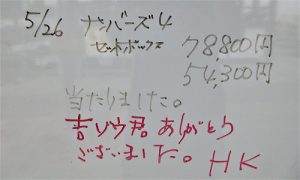 5/26 ナンバーズ4
セットボックス 78,800円
54,300円
当たりました。
吉ゾウ君 ありがとう
ございました。HK